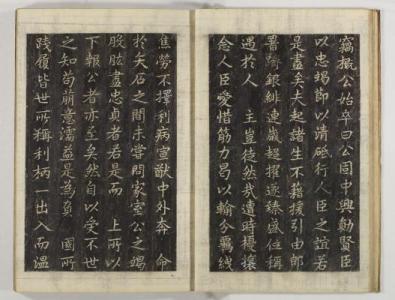 竊概公始卒曰公固中興勳賢臣
以忠蝎節以清砥行人臣之誼若
是盡矣夫起諸生不藉援引由郎
署躋銀緋連歲超擢遂臻盛位稱
遇於人 主豈徒然哉遭時擾攘
念人臣愛惜筋力曷以輸分覊絏
焦勞不擇利病宣猷中外奔 命
於矢石之間未嘗問家室公之竭
股肱盡忠貞者若是而 上所以
下報公者亦至矣然自以受不世
之知茍萌意濡益是為負 國所
踐履皆世所稱利柄一出入而溫